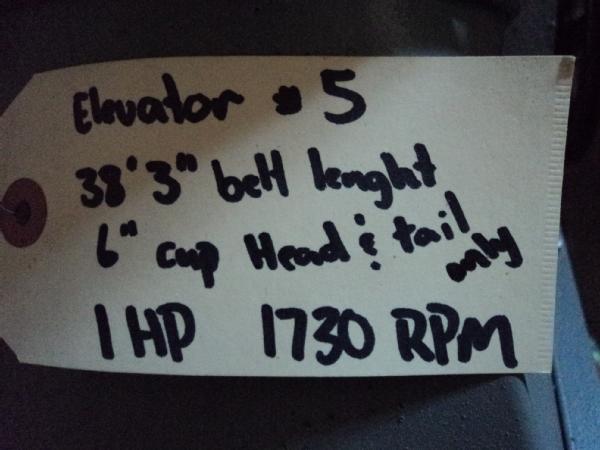 Elevator # 5
38' 3" belt lenght
6" cup Head & tail only
1 HP 1730 RPM